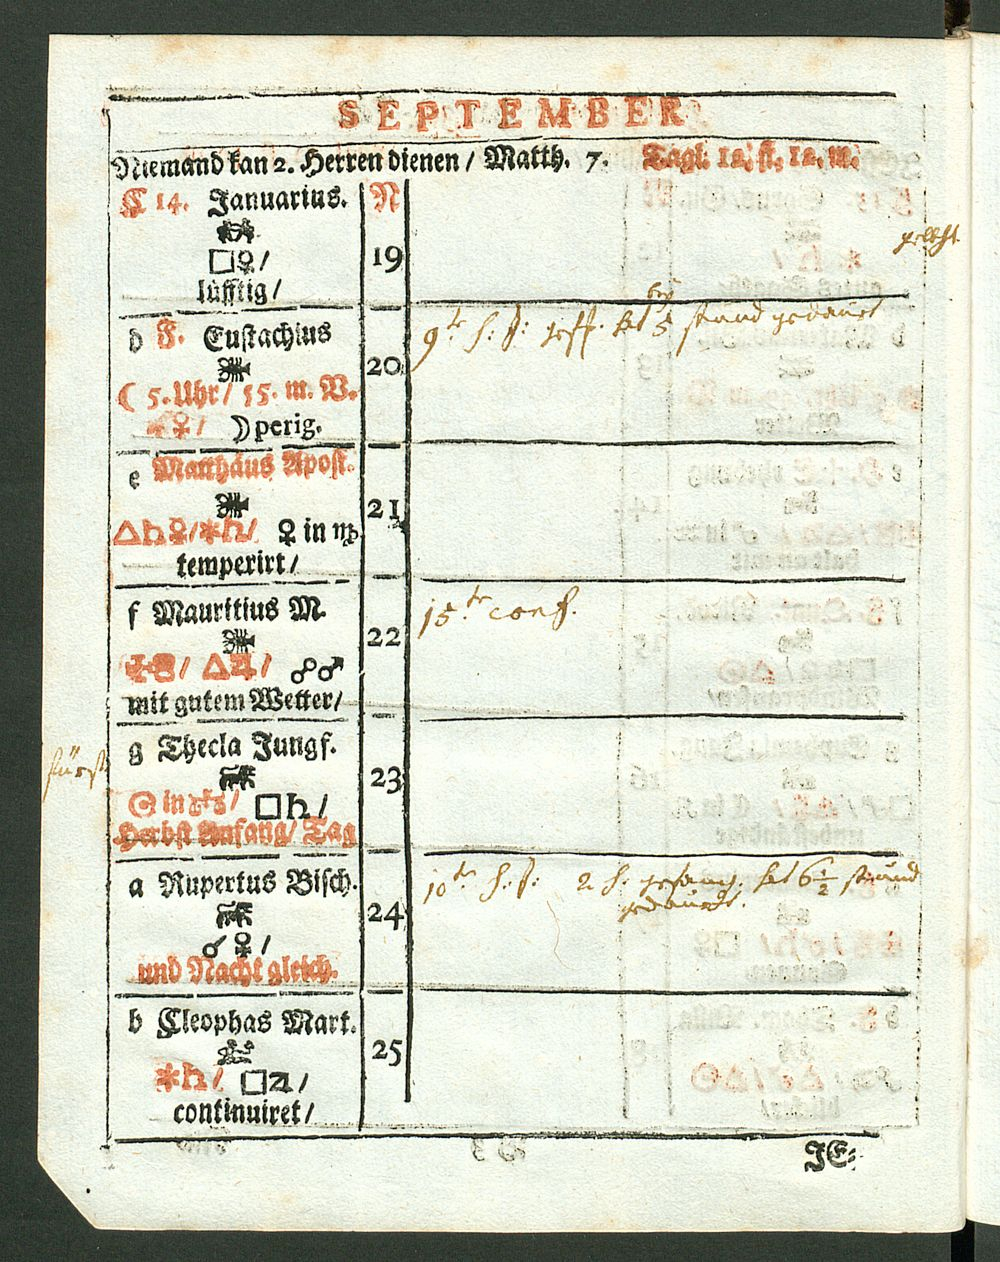 SEPTEMBER
Niemand kan 2. Herren dienen / Matth. 7. Tagl. 12. st. 12. m.
C 14. Januarius. N
□♀ /
19
lüfftig /
d F. Eustachius
20
☾ 5. Uhr / 55. m. V.
♀ / ☽ perig.
9te h. s: hat 5 stund gedauert
e Matthäus Apost.
21
△♄♀/✶♄/ ♀ in ♍
temperirt /
f Mauritius M.
22
△♃/ ☍♂
mit gutem Wetter /
15te conf.
g Thecla Jungf.
23
☉ in ♎ / □♄ /
Herbst Anfang / Tag
a Rupertus Bisch.
24
☌ ♀ /
und Nacht gleich.
10te h. s: 2 h: gesang. hat 6 1/2 stund
gedauert.
b Cleophas Mart.
25
✶♄ / □♃ /
continuiret /
JE-